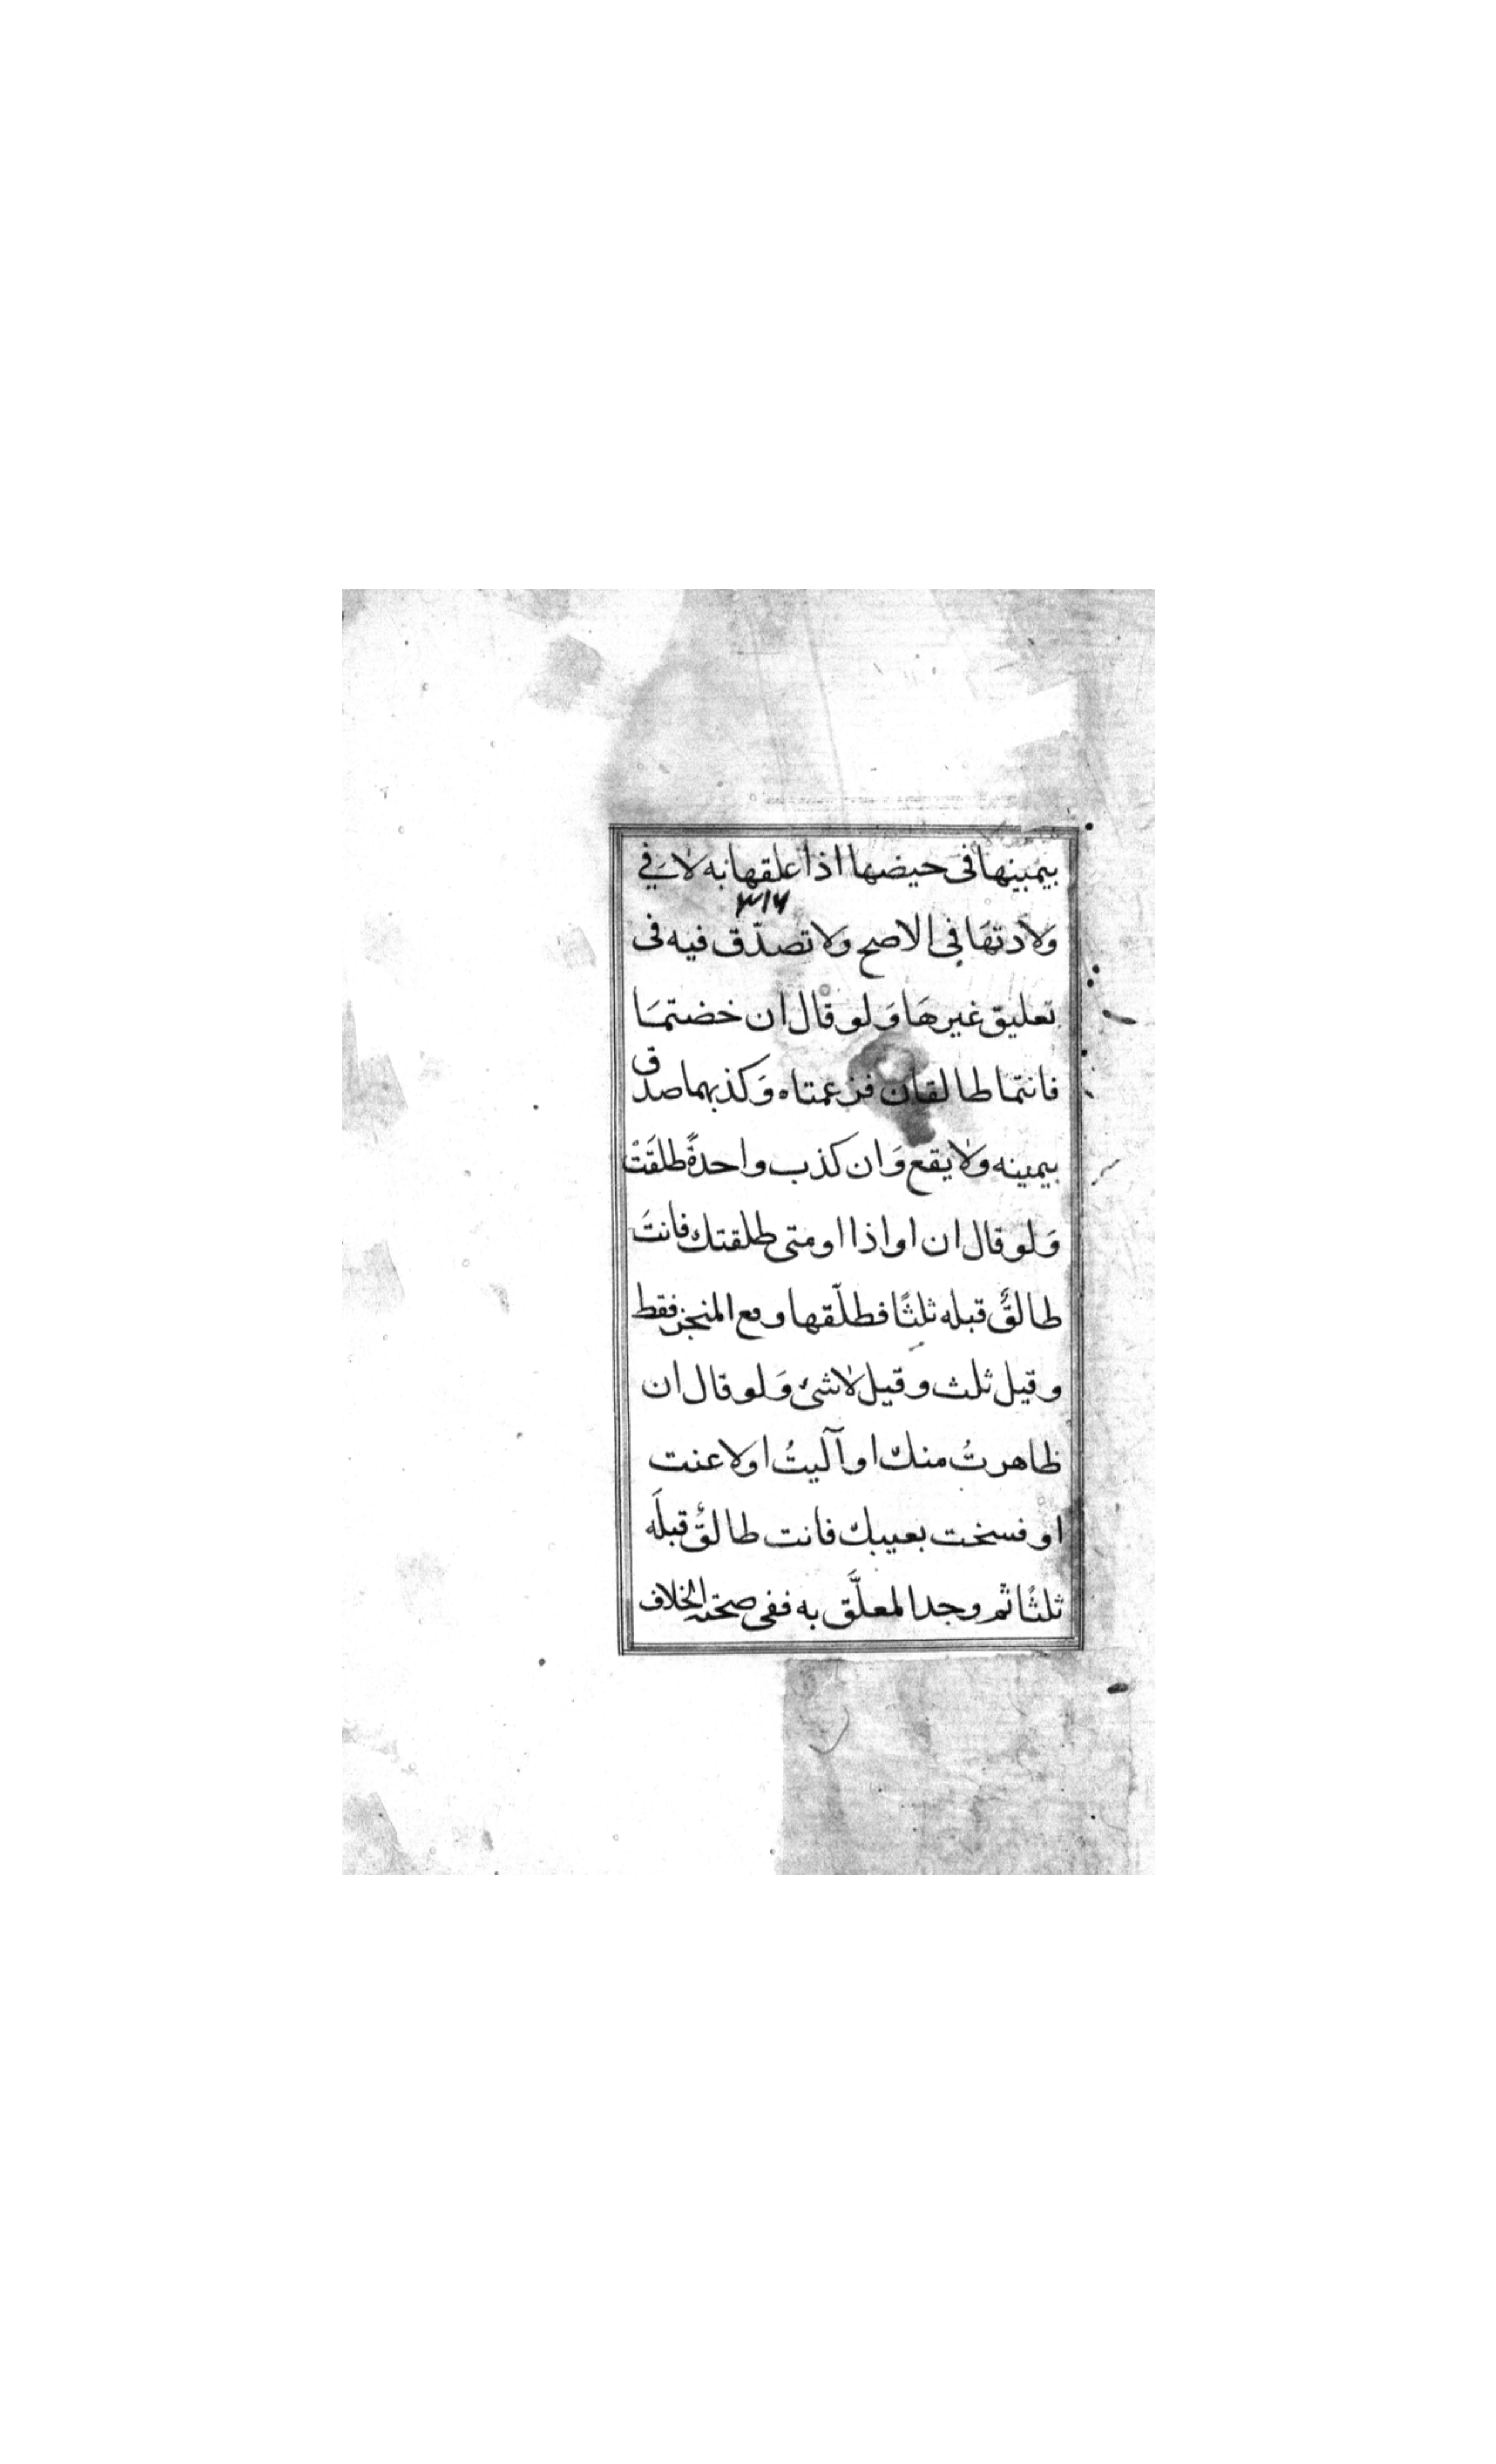 بيمينها في حيضها اذا علقها به لا في
٣١٦
ولادتها في الاصح ولا تصدّق فيه في
تعليق غيرها وَلو قال ان حضتما
فانتما طالقان فزعمتاه وَكذبهما صدق
بيمينه ولا يقع وَان كذب واحدةً طلقَتْ
وَلو قال ان او اذا او متى طلقتك فانتَ
طالقٌ قبله ثلثًا فطلّقها وقع المنجز فقط
وقيل ثلث وقيل لا شئ وَلو قال ان
ظاهرتُ منك او آليتُ او لاعنت
او فسخت بعيبك فانت طالقٌ قبلَه
ثلثًا ثم وجد المعلَّق به ففي صحته الخلاف